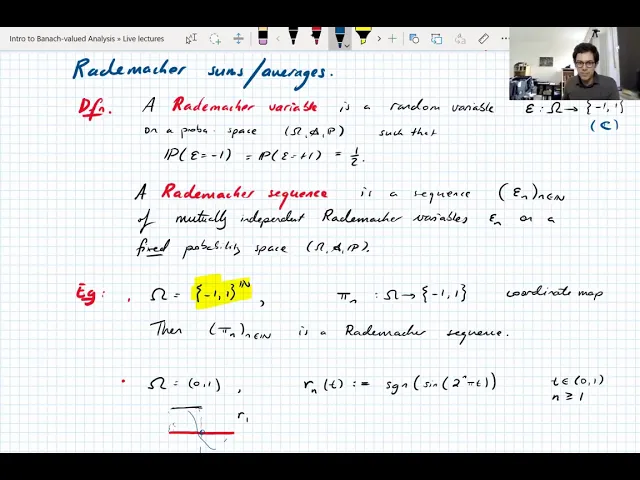 Intro to Banach-valued Analysis » Live lectures
Rademacher sums/averages.
Dfn. A Rademacher variable is a random variable ε : Ω → {-1,1}
(C)
on a proba. space (Ω, A, P) such that
P(ε = -1) = P(ε = +1) = 1/2.
A Rademacher sequence is a sequence (εn)n∈N
of mutually independent Rademacher variables εn on a
fixed probability space (Ω, A, P).
Eg: Ω = {-1,1}^N, πn : Ω → {-1,1} coordinate map
Then (πn)n∈N is a Rademacher sequence.
Ω = (0,1), rn(t) := sgn(sin(2^n πt)) t∈(0,1)
n ≥ 1
r1